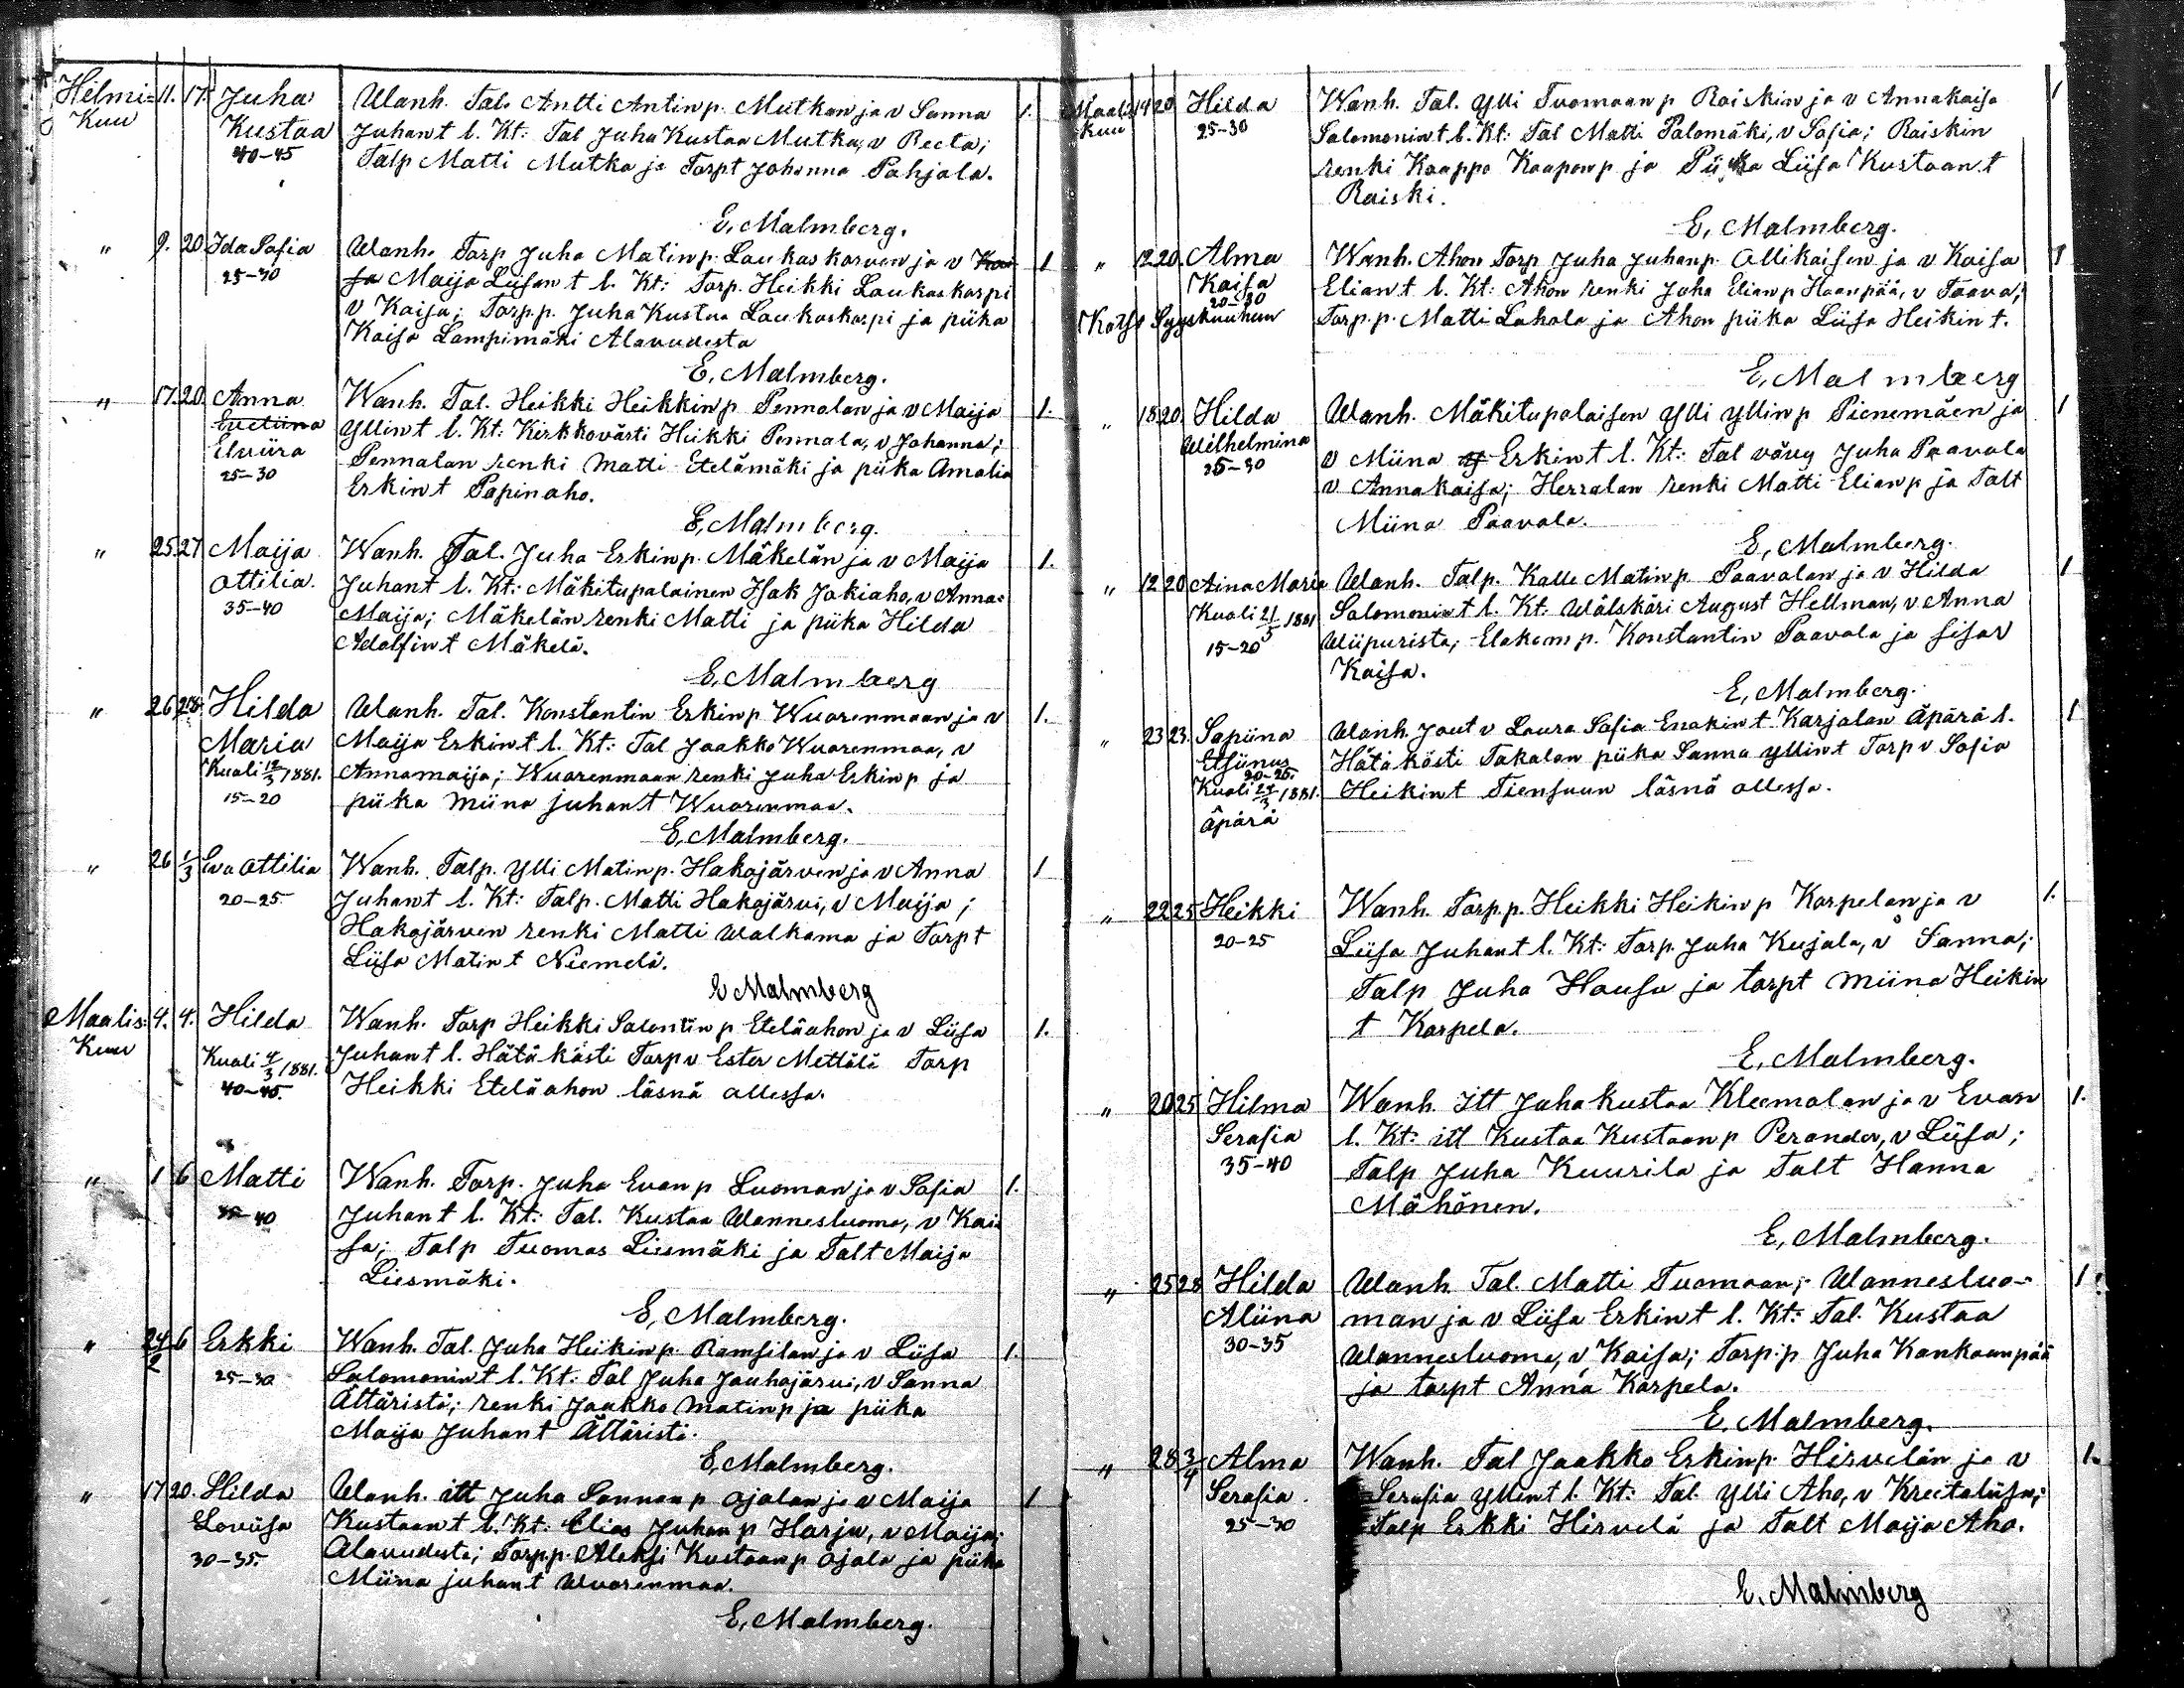 Helmi= 11. 17. Juha Wanh. Tal. Antti Antinp. Mutkan ja v Sanna 1.
Kuu Kustaa Juhant l. Kt: Tal Juha Kustaa Mutka, v Reeta;
40–45 Talp Matti Mutka ja Tarpt Johanna Pohjola.
E. Malmberg.
" 9. 20 Ida Sofia Wanh. Tarp Juha Matinp. Laukaskorven ja v Kai- 1
25–30 sa Maija Liisant l. Kt: Torp. Heikki Laukaskorpi
v Kaisa; Torp.p. Juha Kustaa Laukaskorpi ja piika
Kaisa Lampimäki Alavudesta
E. Malmberg.
" 17. 20. Anna Wanh. Tal. Heikki Heikkinp Pennalan ja v Maija 1.
Evetiina Yllint l. Kt: Kirkkovärti Heikki Pennala, v Johanna;
Elviira Pennalan renki Matti Etelämäki ja piika Amalia
25–30 Erkint Papinaho.
E. Malmberg.
" 25. 27 Maija Wanh. Tal. Juha Erkinp. Mäkelän ja v Maija 1.
Ottilia. Juhant l. Kt: Mäkitupalainen Isak Jokiaho, v Anna=
35–40 Maija; Mäkelän renki Matti ja piika Hilda
Adolfint Mäkelä.
E. Malmberg
" 26 28 Hilda Wanh. Tal. Konstantin Erkinp Wuorenmaan ja v 1.
Maria Maija Erkint l. Kt: Tal Jaakko Wuorenmaa, v
Kuoli 12/3 1881. Annamaija; Wuorenmaan renki Juha Erkinp ja
15–20 piika Miina Juhant Wuorenmaa.
E. Malmberg.
" 26 1/3 Eva Ottilia Wanh. Talp. Ylli Matinp. Hakojärven ja v Anna 1
20–25. Juhant l. Kt: Talp. Matti Hakojärvi, v Maija;
Hakojärven renki Matti Walkama ja Torpt
Liisa Matint Niemelä.
E Malmberg
Maalis= 4. 4. Hilda Wanh. Torp Heikki Salomonp Eteläahon ja v Liisa 1.
Kuu Kuoli 4/3 1881. Juhant l. Hätäkasti Torp v Ester Mettälä Torp
40–45. Heikki Eteläahon läsnä ollessa.
" 1 6 Matti Wanh. Torp. Juha Evan p Luoman ja v Sofia 1.
35–40 Juhant l. Kt: Tal. Kustaa Wannesluoma, v Kai
sa; Talp Tuomas Liesmäki ja Talt Maija
Liesmäki.
E. Malmberg.
" 24/2 6 Erkki Wanh. Tal. Juha Heikinp. Ramsilan ja v Liisa 1.
25–30 Salomonint l. Kt: Tal Juha Jouhojärvi, v Sanna
Ättäristä; renki Jaakko Matinp ja piika
Maija Juhant Ättäristi.
E. Malmberg.
" 17 20. Hilda Wanh. itt Juha Sannan p Ojalan ja v Maija 1
Loviisa Kustaant l. Kt: Elias Juhan p Harju, v Maija;
30–35. Alavudesta; Torp.p. Aleksi Kustaanp Ojala ja piika
Miina Juhant Wuorenmaa.
E. Malmberg.
Maalis 14 20 Hilda Wanh. Tal. Ylli Tuomaan p Raiskin ja v Annakaisa 1
kuu 25–30 Salomonint l. Kt: Tal Matti Palomäki, v Sofia; Raiskin
renki Kaappo Kaaponp ja Piika Liisa Kustaant
Raiski.
E. Malmberg.
" 12 20. Alma Wanh. Ahon Torp Juha Juhanp. Ollikaisen ja v Kaisa 1
Kaisa Eliant l. Kt: Ahon renki Juha Elianp Haanpää, v Taava;
20–30
Katso Syyskuuhun Torp.p. Matti Lahola ja Ahon piika Liisa Heikint.
E. Malmberg
" 18 20. Hilda Wanh. Mäkitupalaisen Ylli Yllinp Pienemäen ja 1
Wilhelmina v Miina Y Erkint l. Kt: Tal vävy Juha Paavola
25–30 v Annakaisa; Herralan renki Matti Elianp ja Talt
Miina Paavola.
E. Malmberg.
" 12 20 Aina Maria Wanh. Talp. Kalle Matinp. Paavolan ja v Hilda 1
Kuoli 21/5 1881 Salomonint l. Kt: Wälskäri August Hellman, v Anna
15–20 Wiipurista; Elakemp. Konstantin Paavola ja sisar
Kaisa.
E. Malmberg.
" 23 23. Sapiina Wanh. Jout v Laura Sofia Enokint Karjalan äpärä l. 1
Etsiinus Hätäkasti Takalan piika Sanna Yllint Torp v Sofia
20–25.
Kuoli 24/3 1881. Heikint Tiensuun läsnä ollessa.
Äpärä
" 22 25 Heikki Wanh. Torp.p. Heikki Heikinp Korpelan ja v 1.
20–25 Liisa Juhant l. Kt: Torp. Juha Kujala, v Sanna;
Talp Juha Hausu ja torpt Miina Heikin
t Korpela.
E. Malmberg.
" 20 25 Hilma Wanh. Itt Juhakustaa Kleemolan ja v Evan 1.
Serafia l. Kt: itt Kustaa Kustaanp Perander, v Liisa;
35–40 Talp Juha Kuurila ja Talt Hanna
Mähönen.
E. Malmberg.
" 25 28 Hilda Wanh. Tal. Matti Tuomaan p Wannesluo- 1
Aliina man ja v Liisa Erkint l. Kt: Tal. Kustaa
30–35 Wannesluoma, v Kaisa; Torp.p Juha Kankaanpää
ja torpt Anna Korpela.
E. Malmberg.
" 28 3/4 Alma Wanh. Tal Jaakko Erkinp. Hirvelän ja v 1.
Serafia Serafia Yllint l. Kt: Tal. Ylli Aho, v Kreetaliisa;
25–30 Talp Erkki Hirvelä ja Talt Maija Aho.
E. Malmberg